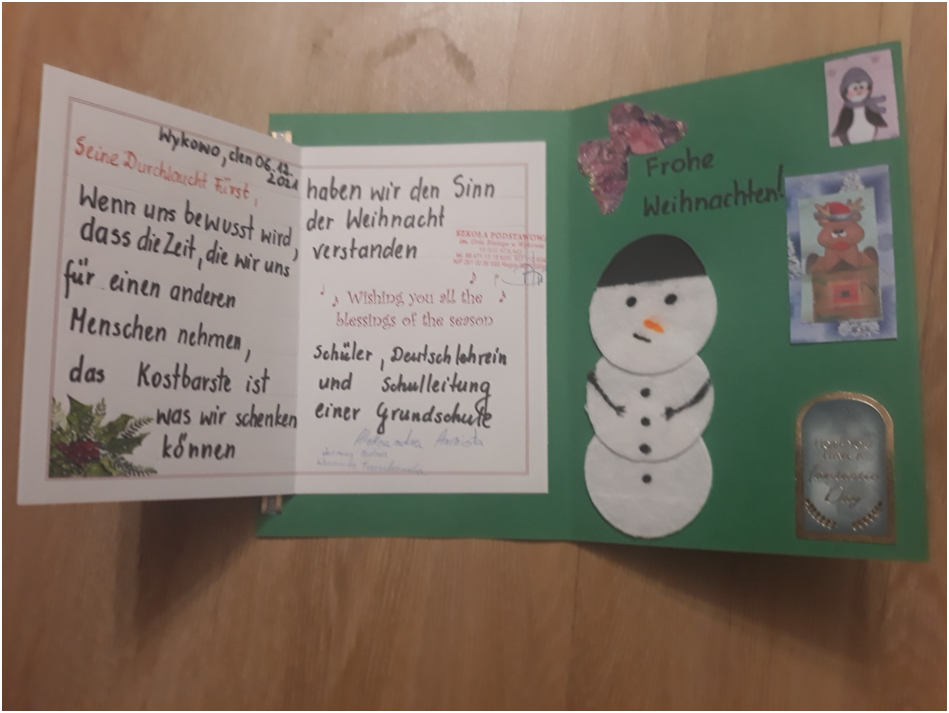 Wykowo, den 06.12.
2021
Seine Durchlaucht Fürst,
Wenn uns bewusst wird,
dass die Zeit, die wir uns
für einen anderen
Menschen nehmen,
das Kostbarste ist
was wir schenken
können
haben wir den Sinn
der Weihnacht
verstanden
SZKOŁA PODSTAWOWA
Wishing you all the
blessings of the season
Schüler, Deutschlehrein
und Schulleitung
einer Grundschule
Frohe
Weihnachten!
fantastic
Day